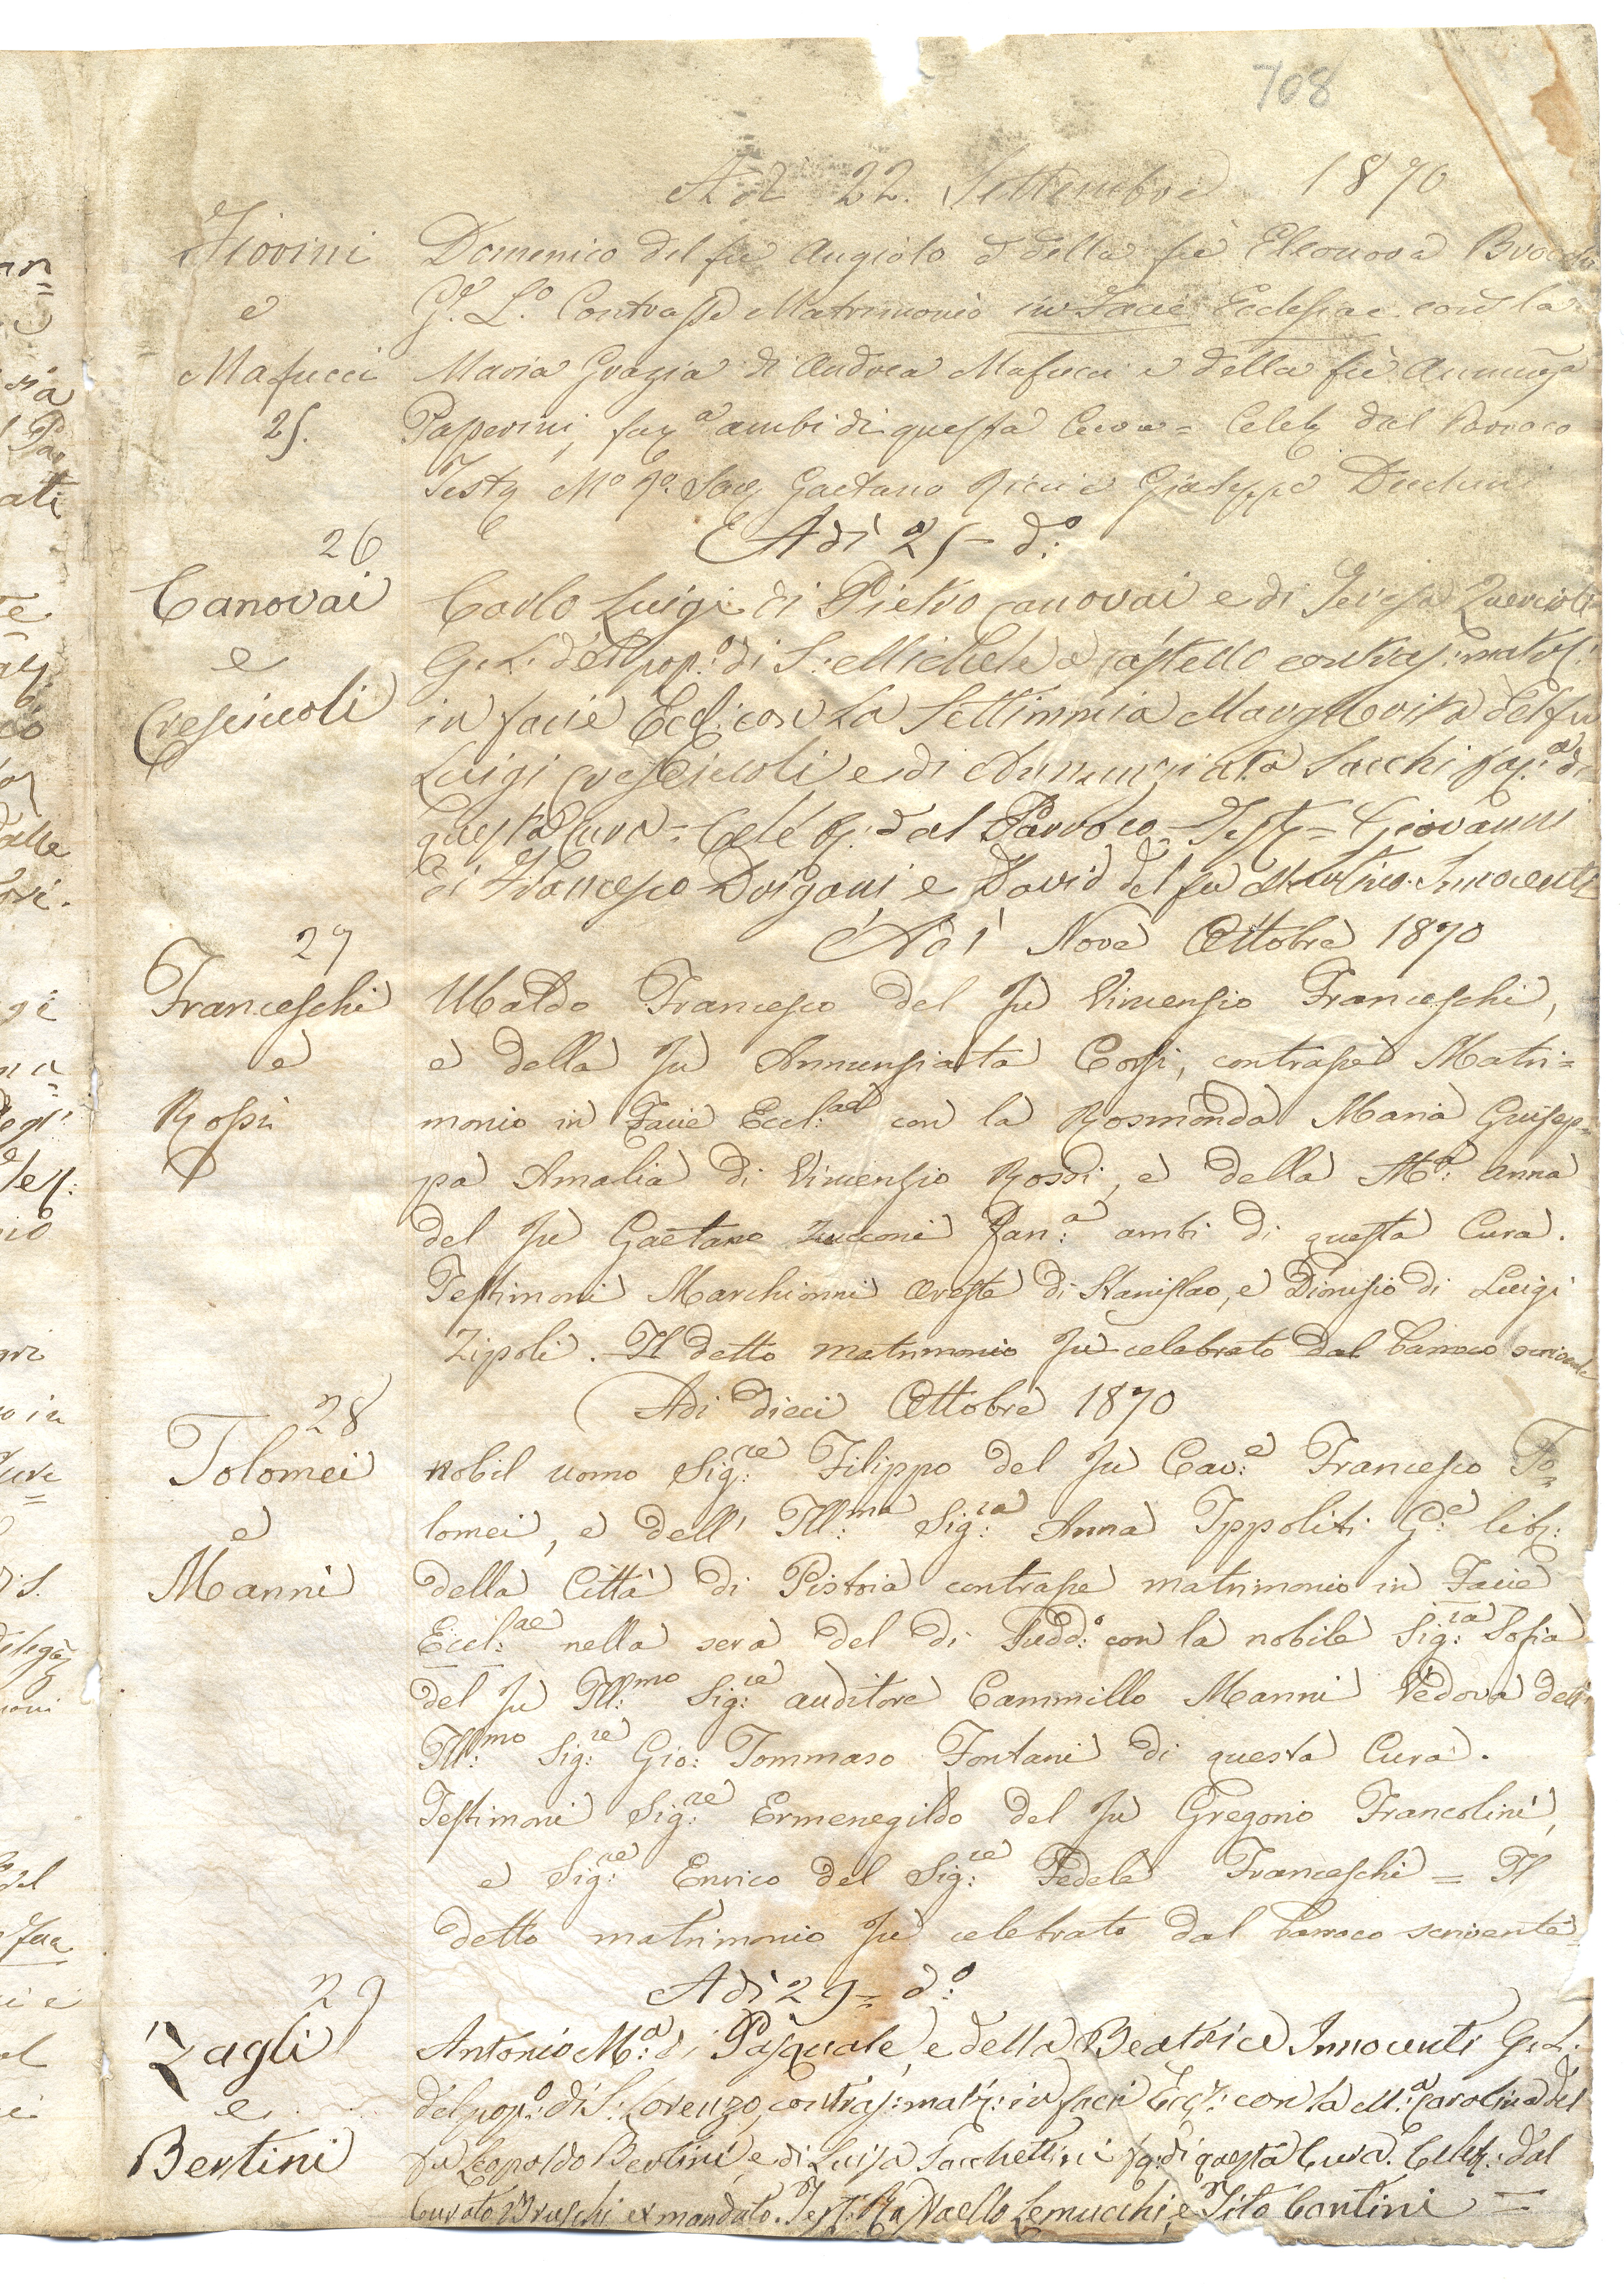 708
Adì 22. Settembre 1870
Fiorini Domenico del fù Angiolo e della fù Eleonora
e G.e L.o Contrasse Matrimonio in Facie Ecclesiae con la
Mafucci Maria Grazia di Andrea Mafucci e della fù Annunz.a
25. Paperini, fan.a ambi di questa Cura = Celeb. dal Parroco
Test. M.o R.o Sac. Gaetano Ricci e Giuseppe
26 Adì 25 d.o
Canovai Carlo Luigi di Pietro Canovai e di Teresa
e G. L. del pop.o di S. Michele a Castello contras: matr:
Crescioli in facie Eccl: con la Settimmia Margherita del fu
Luigi Crescioli e di Annunziata Sacchi fan.a di
questa Cura = Celeb: dal Parroco = Test = Giovanni
di Francesco Dorigani e David del fu Martino Innocenti
27 Adì Nove Ottobre 1870
Franceschi Ubaldo Francesco del Fù Vincensio Franceschi,
e e della Fù Annunsiata Corsi, contrasse Matri=
Rossi monio in Facie Eccl:ae con la Rosmonda Maria Giusep=
pa Amalia di Vincensio Rossi, e della M.a: Anna
del Fù Gaetano Zucconi Fan:a ambi di questa Cura.
Testimoni Marchionni Oreste di Stanislao, e Dionisio di Luigi
Zipoli. Il detto matrimonio Fù celebrato dal Parroco scrivente
28 Adì dieci Ottobre 1870
Tolomei nobil uomo Sig:re Filippo del Fù Cav:e Francesco To=
e lomei, e dell' Ill:ma Sig:ra Anna Ippoliti G:e lib:
Manni della Città di Pistoia contrasse matrimonio in Facie
Eccl:ae nella sera del dì sudd:o con la nobile Sig:ra Sofia
del Fù Ill:mo Sig:re auditore Cammillo Manni Vedova dell'
Ill:mo Sig:re Gio: Tommaso Fontani di questa Cura.
Testimoni Sig:re Ermenegildo del Fù Gregorio Francolini,
e Sig:re Enrico del Sig:re Fedele Franceschi = Il
detto matrimonio Fù celebrato dal Parroco scrivente =
29 Adì 29 = d:o
Zagli Antonio M:a di Pasquale, e della Beatrice Innocenti G. L.
e del pop:o di S: Lorenzo, contras: matr: in facie Eccl: con la M:a Carolina del
Bertini fu Leopoldo Bertini, e di Luisa Sacchettini f. di questa Cura. Celeb: dal
Curato Bruschi ex mandato. Test: Raffaello Lemucchi, e Tito Contini =